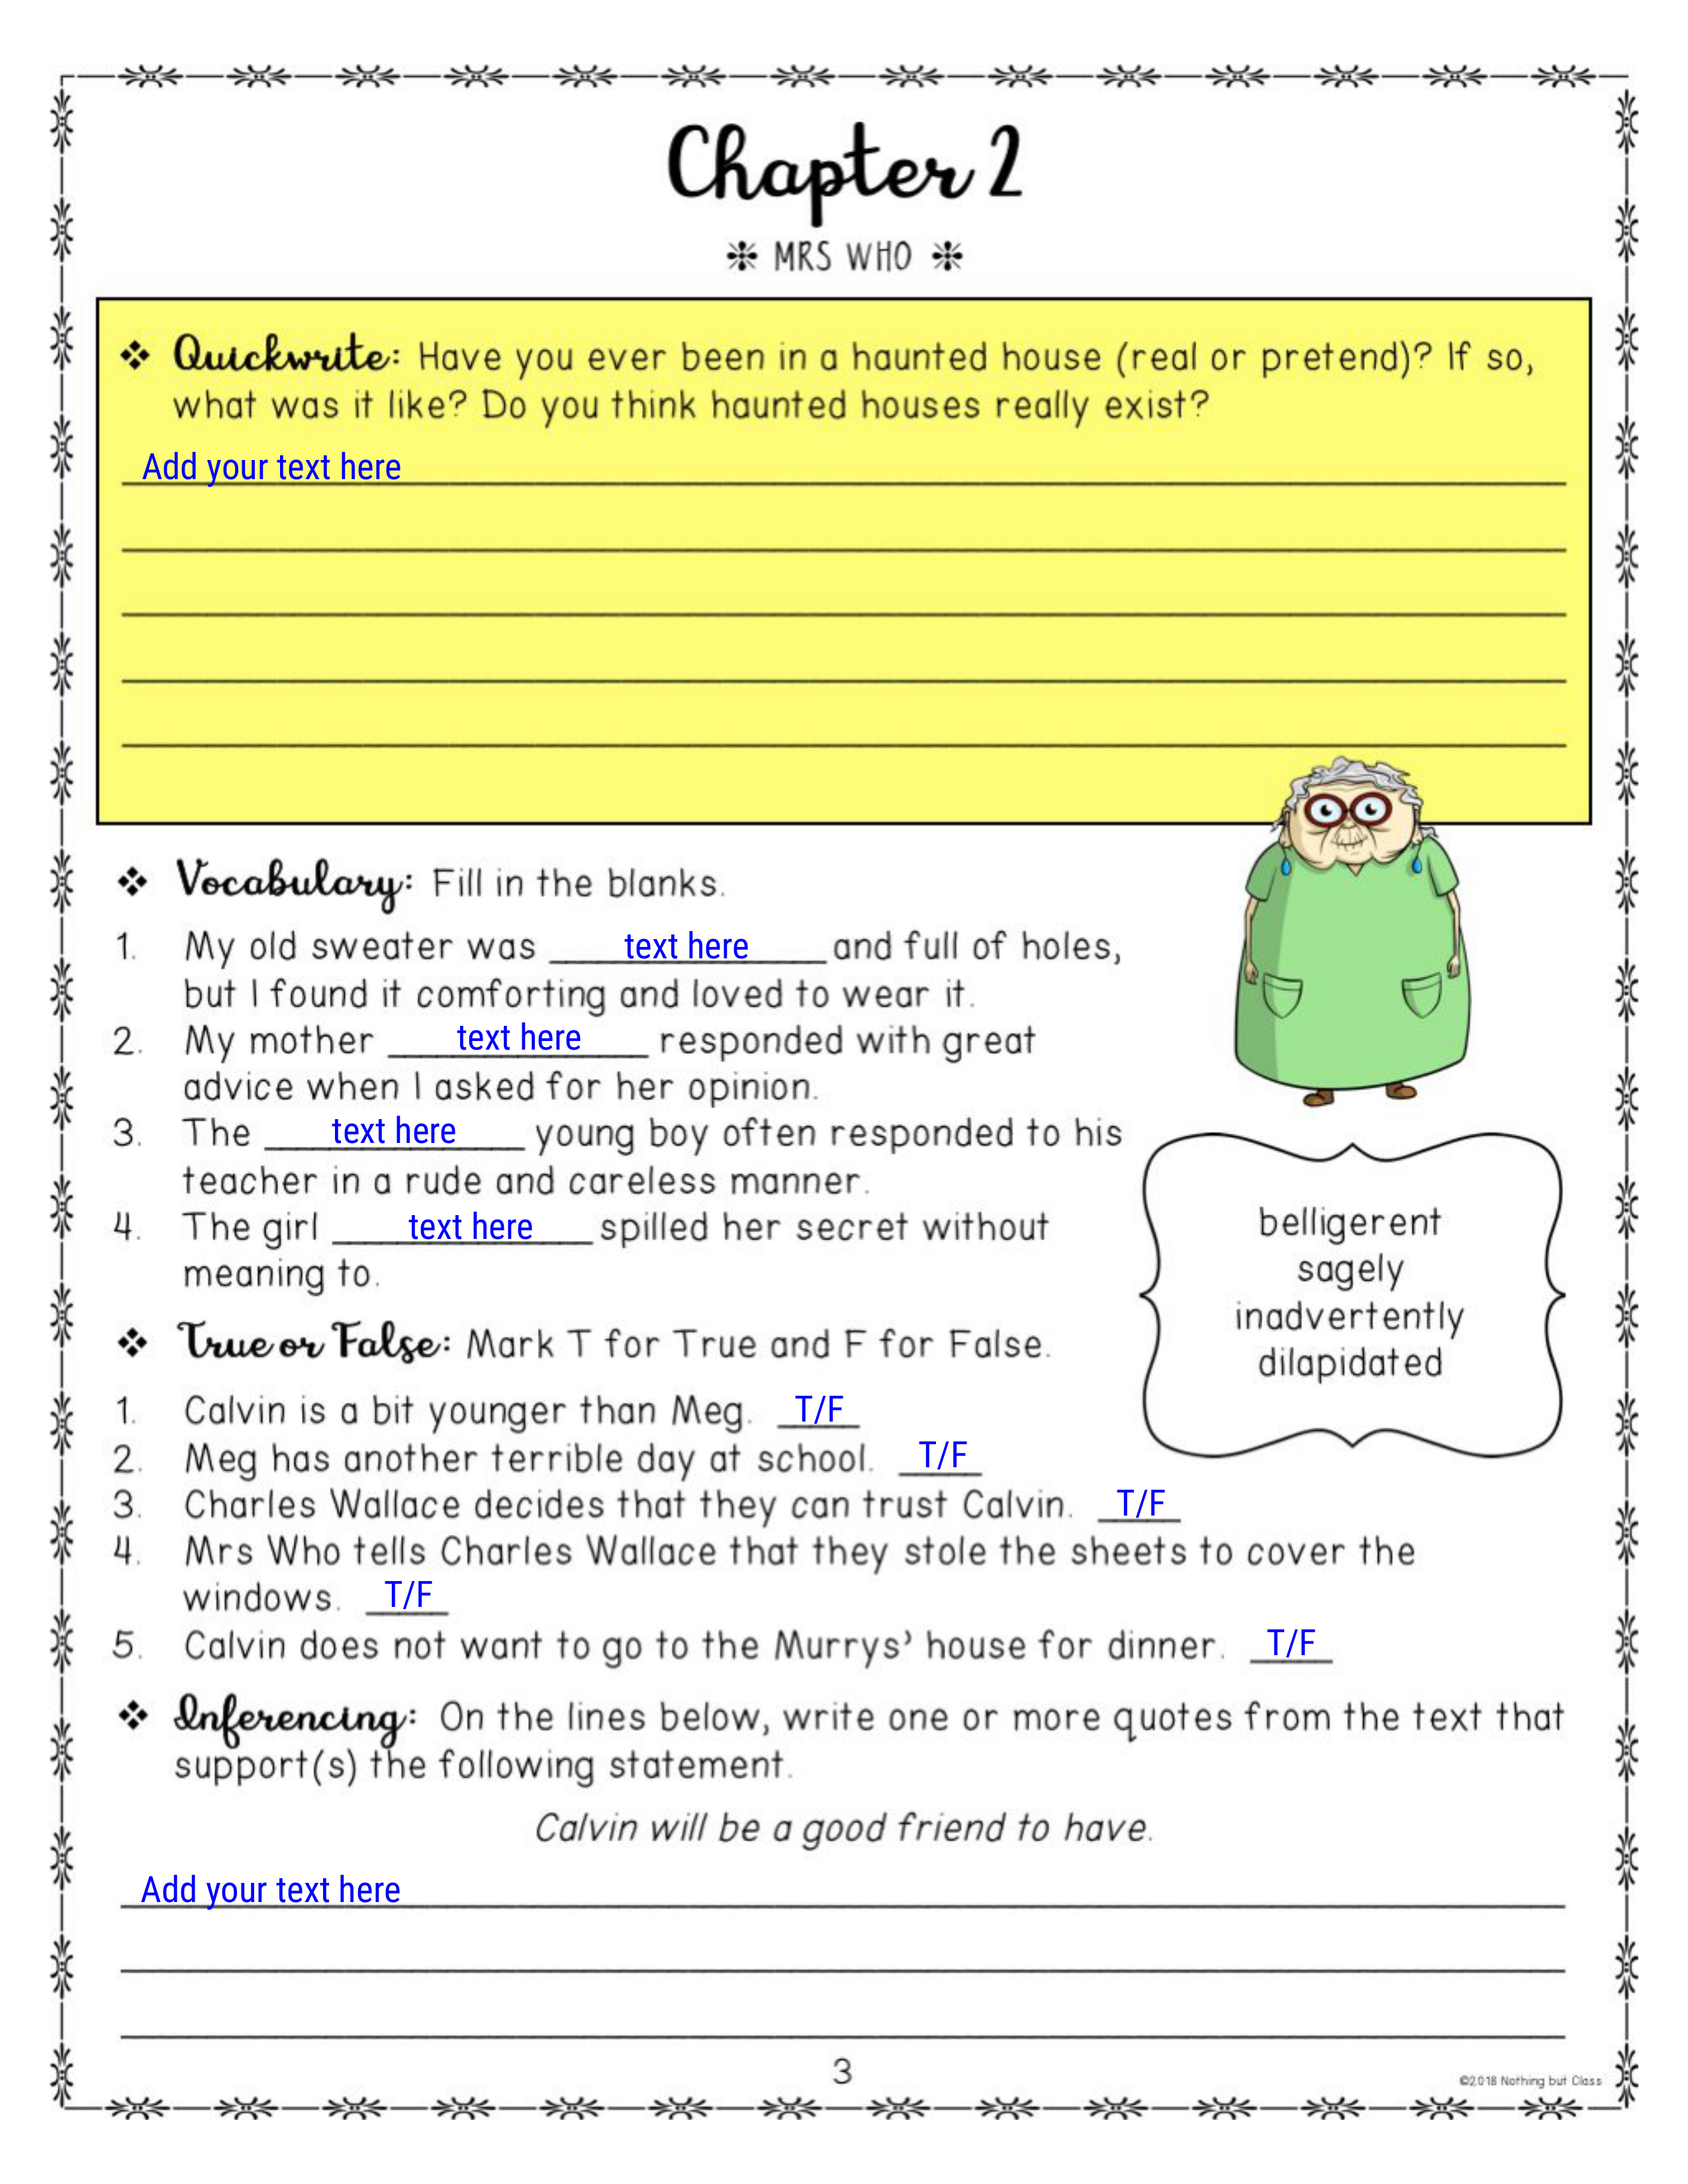 Chapter 2
MRS WHO
Quickwrite: Have you ever been in a haunted house (real or pretend)? If so,
what was it like? Do you think haunted houses really exist?
Add your text here
Vocabulary: Fill in the blanks.
1. My old sweater was text here and full of holes,
but I found it comforting and loved to wear it.
2. My mother text here responded with great
advice when I asked for her opinion.
3. The text here young boy often responded to his
teacher in a rude and careless manner.
4. The girl text here spilled her secret without
meaning to.
belligerent
sagely
inadvertently
dilapidated
True or False: Mark T for True and F for False.
1. Calvin is a bit younger than Meg. T/F
2. Meg has another terrible day at school. T/F
3. Charles Wallace decides that they can trust Calvin. T/F
4. Mrs Who tells Charles Wallace that they stole the sheets to cover the
windows. T/F
5. Calvin does not want to go to the Murrys' house for dinner. T/F
Inferencing: On the lines below, write one or more quotes from the text that
support(s) the following statement.
Calvin will be a good friend to have.
Add your text here
3
©2018 Nothing but Class